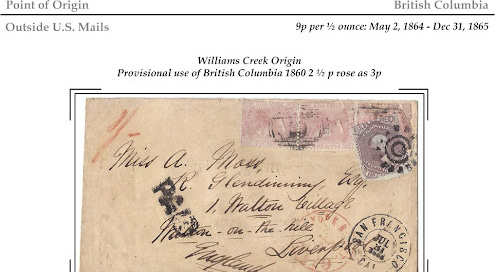 Point of Origin British Columbia
Outside U.S. Mails 9p per ½ ounce: May 2, 1864 - Dec 31, 1865
Williams Creek Origin
Provisional use of British Columbia 1860 2 ½ p rose as 3p
Miss A. Moss,
R. Glendinning, Esq.
1, Walton Village
Walton-on-the-hill
Liverpool
England
SAN FRANCISCO
JUL
31
CAL